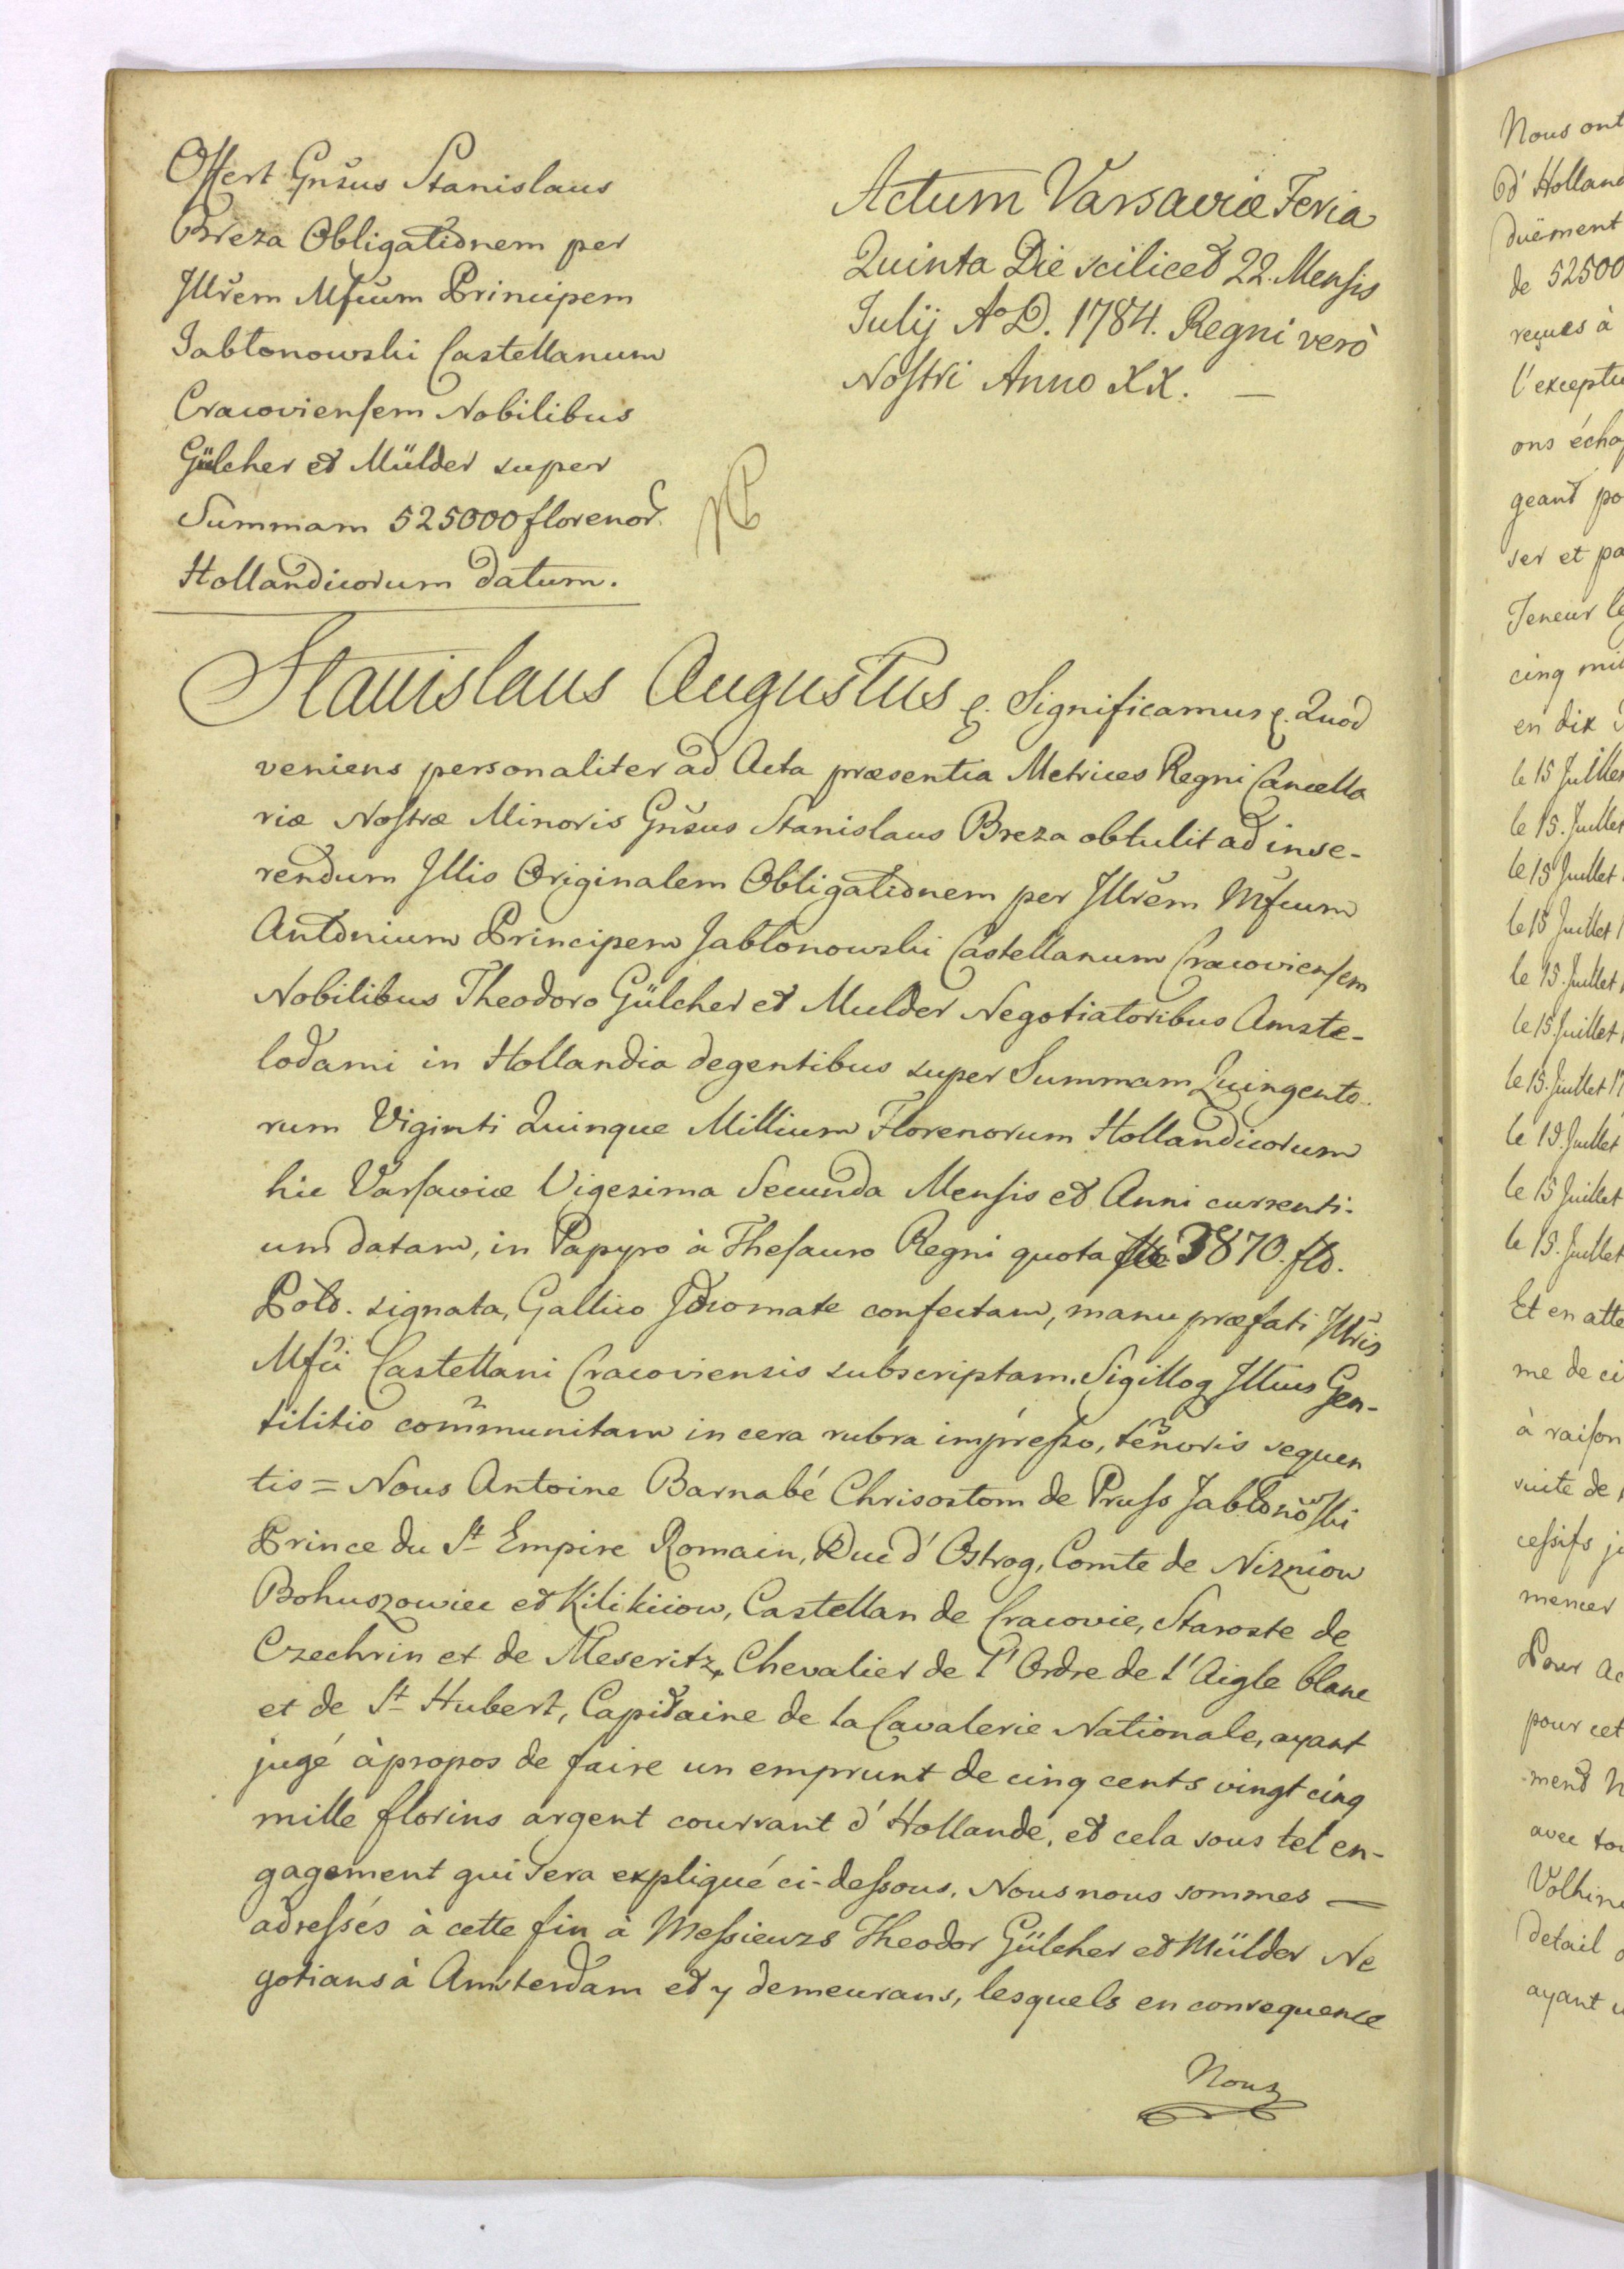 Offert Gnsus Stanislaus
Breza Obligationem per
Jllrem Mfcum Principem
Jabłonowski Castellanum
Cracoviensem Nobilibus
Gülcher et Mülder super
Summam 525000 florenor.
Hollandicorum datum.
Actum Varsaviæ Feria
Quinta Die scilicet 22. Mensis
Julij Ao D. 1784. Regni verò
Nostri Anno XX. —
Stanislaus Augustus &. Significamus &. Quod
veniens personaliter ad Acta præsentia Metrices Regni Cancella
riæ Nostræ Minoris Gnsus Stanislaus Breza obtulit ad inse-
rendum Jllis Originalem Obligationem per Jllrem Mfcum
Antonium Principem Jabłonowski Castellanum Cracoviensem
Nobilibus Theodoro Gülcher et Mulder Negotiatoribus Amste-
lodami in Hollandia degentibus super Summam Quingento-
rum Viginti Quinque Millium Florenorum Hollandicorum
hic Varsaviæ Vigesima Secunda Mensis et Anni currenti-
um datam, in Papyro à Thesauro Regni quota 3870. flo.
Polo. signata, Gallico Jdiomate confectam, manu præfati Jllris
Mfci Castellani Cracoviensis subscriptam. Sigilloq Jllius Gen-
tilitio communitam in cera rubra impresso, tenoris sequen
tis = Nous Antoine Barnabé Chrisostom de Pruss Jabłonowski
Prince du St Empire Romain, Duc d'Ostrog, Comte de Nizniow
Bohuszowiec et Kilikiiow, Castellan de Cracovie, Staroste de
Czechrin et de Meseritz, Chevalier de l'Ordre de l'Aigle blanc
et de St Hubert, Capitaine de la Cavalerie Nationale, ayant
jugé àpropos de faire un emprunt de cinq cents vingt cinq
mille florins argent courrant d'Hollande, et cela sous tel en-
gagement qui sera expliqué ci-dessous. Nous nous sommes —
adressés à cette fin à Messieurs Theodor Gülcher et Mülder Ne
gotians à Amsterdam et y demeurans, lesquels en consequence
Nous
Nous ont
d'Holland
duëment
de 52500
reçues à
l'exceptu
ons écho
geant po
ser et pa
Teneur le
cinq mil
en dix
le 15 Juillet
le 15. Juillet
le 15 Juillet
le 15 Juillet 1
le 15. Juillet
le 15 Juillet
le 15. Juillet 17
le 15. Juillet
le 15 Juillet
le 15. Juillet
Et en atte
me de ci
à raison
suite de
cessifs j
mencer
Pour ac
pour cet
ment N
avec to
Volhin
detail
ayant